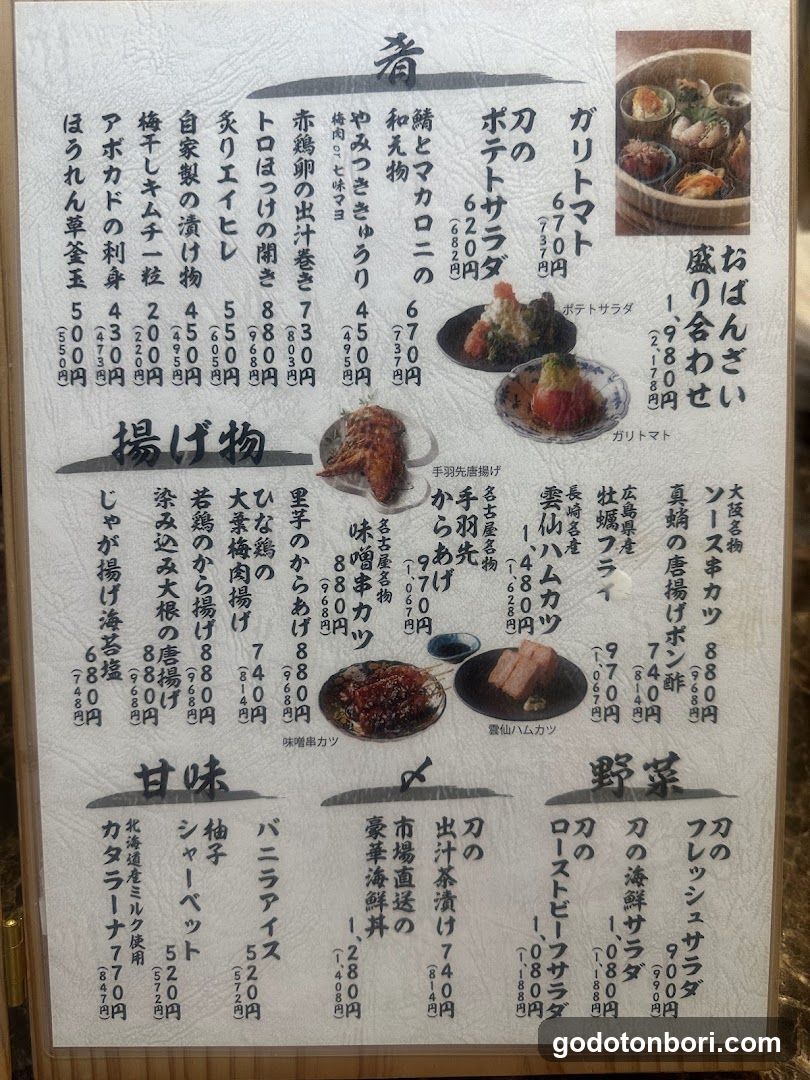 肴
おばんざい
盛り合わせ
1,980円
(2,178円)
ガリトマト
670円
(737円)
刀の
ポテトサラダ
620円
(682円)
鱈とマカロニの
和え物
670円
(737円)
やみつききゅうり
梅肉 or 七味マヨ
450円
(495円)
赤鶏卵の出汁巻き
730円
(803円)
トロほっけの開き
880円
(968円)
炙りエイヒレ
550円
(605円)
自家製の漬け物
450円
(495円)
梅干しキムチ一粒
200円
(220円)
アボカドの刺身
430円
(473円)
ほうれん草釜玉
500円
(550円)
ポテトサラダ
ガリトマト
揚げ物
手羽先唐揚げ
大阪名物
ソース串カツ
880円
(968円)
真蛸の唐揚げポン酢
740円
(814円)
広島県産
牡蠣フライ
970円
(1,067円)
長崎名産
雲仙ハムカツ
1,480円
(1,628円)
名古屋名物
手羽先
からあげ
970円
(1,067円)
名古屋名物
味噌串カツ
880円
(968円)
里芋のからあげ
880円
(968円)
ひな鶏の
大葉梅肉揚げ
740円
(814円)
若鶏のから揚げ
880円
(968円)
染み込み大根の唐揚げ
880円
(968円)
じゃが揚げ海苔塩
680円
(748円)
味噌串カツ
雲仙ハムカツ
野菜
刀の
フレッシュサラダ
900円
(990円)
刀の海鮮サラダ
1,080円
(1,188円)
刀の
ローストビーフサラダ
1,080円
(1,188円)
〆
刀の
出汁茶漬け
740円
(814円)
市場直送の
豪華海鮮丼
1,280円
(1,408円)
甘味
バニラアイス
520円
(572円)
柚子
シャーベット
520円
(572円)
北海道産ミルク使用
カタラーナ
770円
(847円)
godotonbori.com